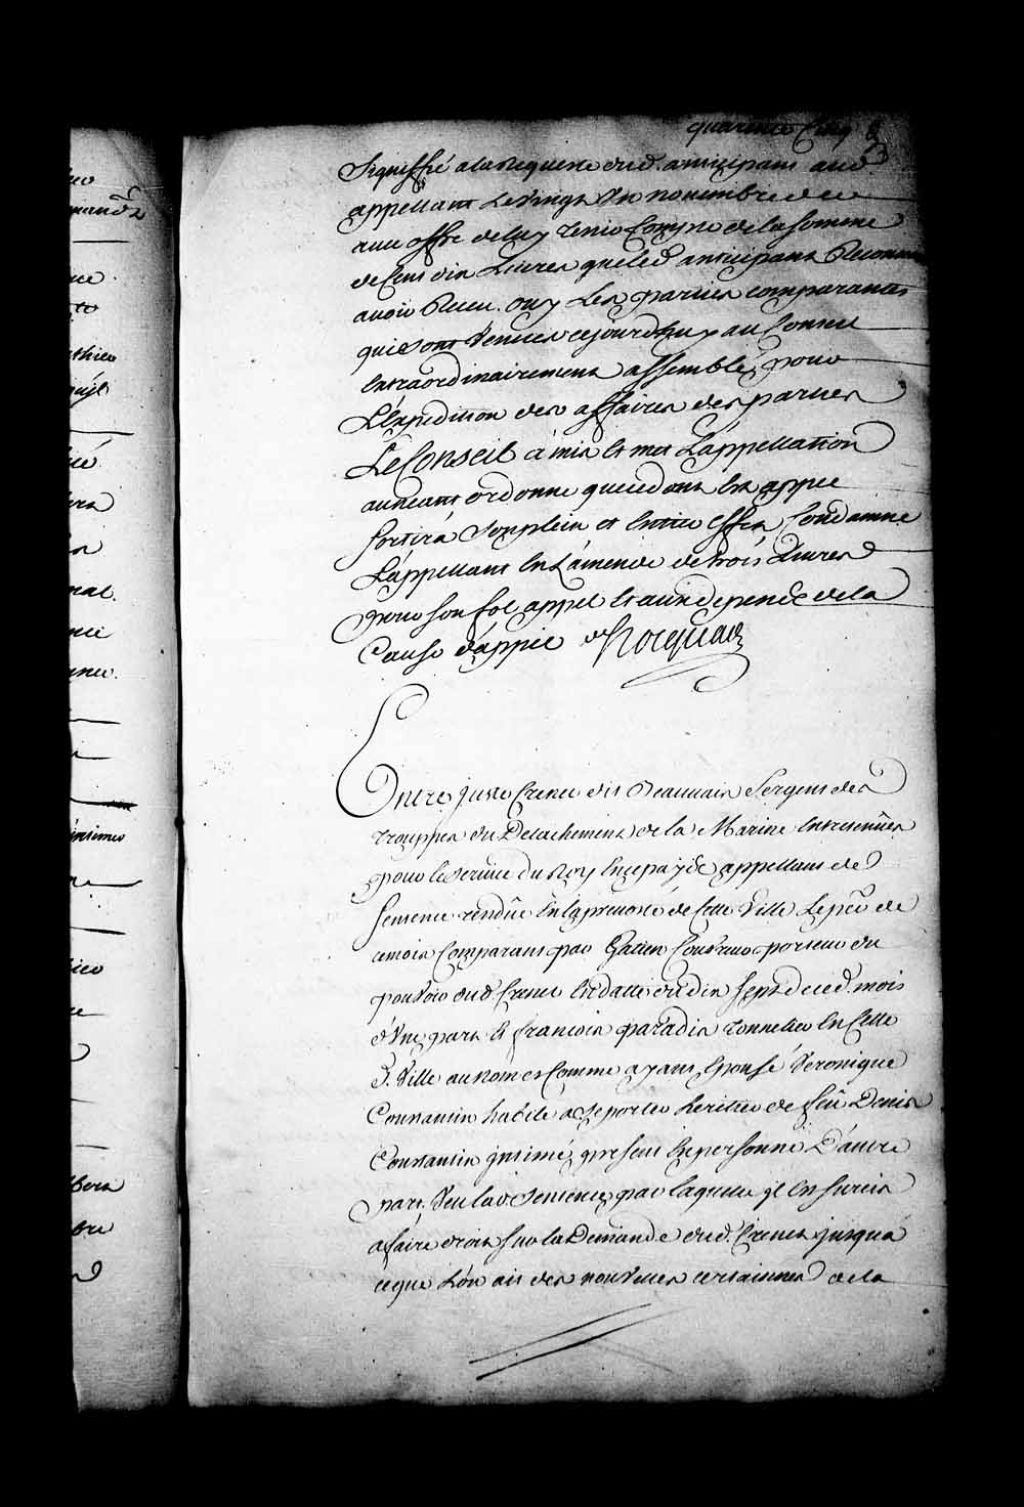 quarente Cinq
Signiffié a la Requeste dud. anticipant aud.
appellant Le Vingt Un nouembre der
aux offre de luy tenir Compte de la Somme
de Cent dix Liures que led anticipant Reconnoit
auoir Receu. Ouy Les parties comparantes
qui sont Venues cejourdhuy au Conseil
Extraordinairement assemblé pour
L'Expedition des affaires des parties
Le Conseil à mis Et met L'appellation
au neant ordonne que ce dont Est appel
Sortira Son plein et Entier effet Condamne
L'appellant En L'amende de trois Liures
pour Son fol appel Et aux depends de la
Cause d'appel Hocquart
Entre Juste Crenet dit Beauuais Sergent des
trouppes du Detachement de la Marine Entretenües
pour le Seruice du Roy En ce païs appellant de
Sentence rendüe En la preuosté de Cette Ville Le per de
ce mois Comparant par Gatien porteur du
pouuoir dud. Crenet En datte du dix Sept de ced. mois
d'Vne part Et françois paradis tonnelier En Cette
d. Ville au nom et Comme ayant Epousé Veronique
Constantin habile à Se porter heritier de feû Denis
Constantin intimé present En personne D'autre
part. Veu lad Sentence par laquelle il Est Surcis
a faire droit Sur la Demande dud. Crenet jusqu'à
ceque L'on ait des nouuelles certaines de la